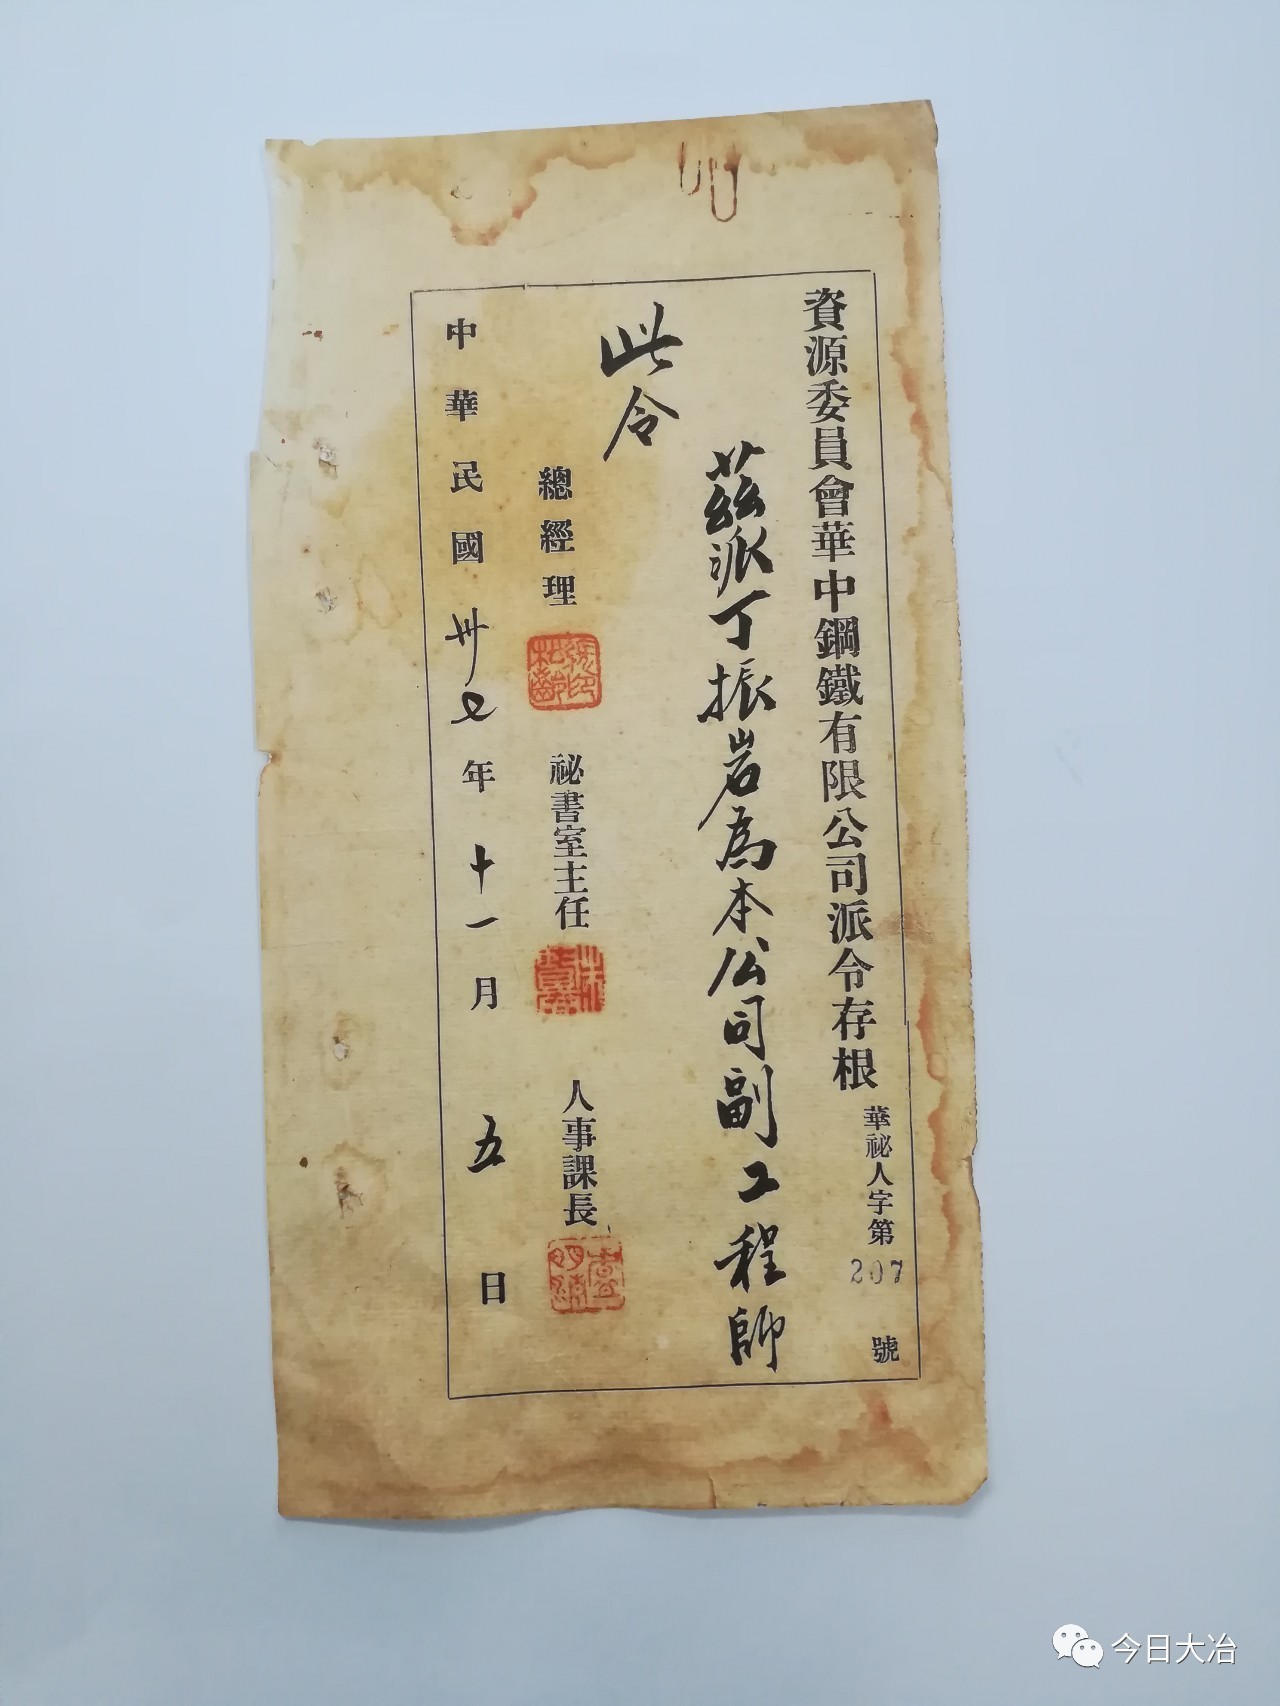 資源委員會華中鋼鐵有限公司派令存根
華祕人字第207號
茲派丁振岩為本公司副工程師
此令
總經理
張印松齡
祕書室主任
人事課長
中華民國卅七年十一月五日
今日大冶